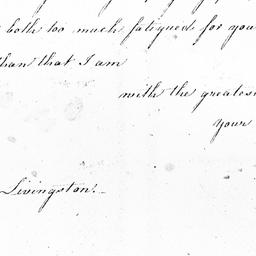 both too much fatigued for you
than that I am
with the greates
your
Livingston.